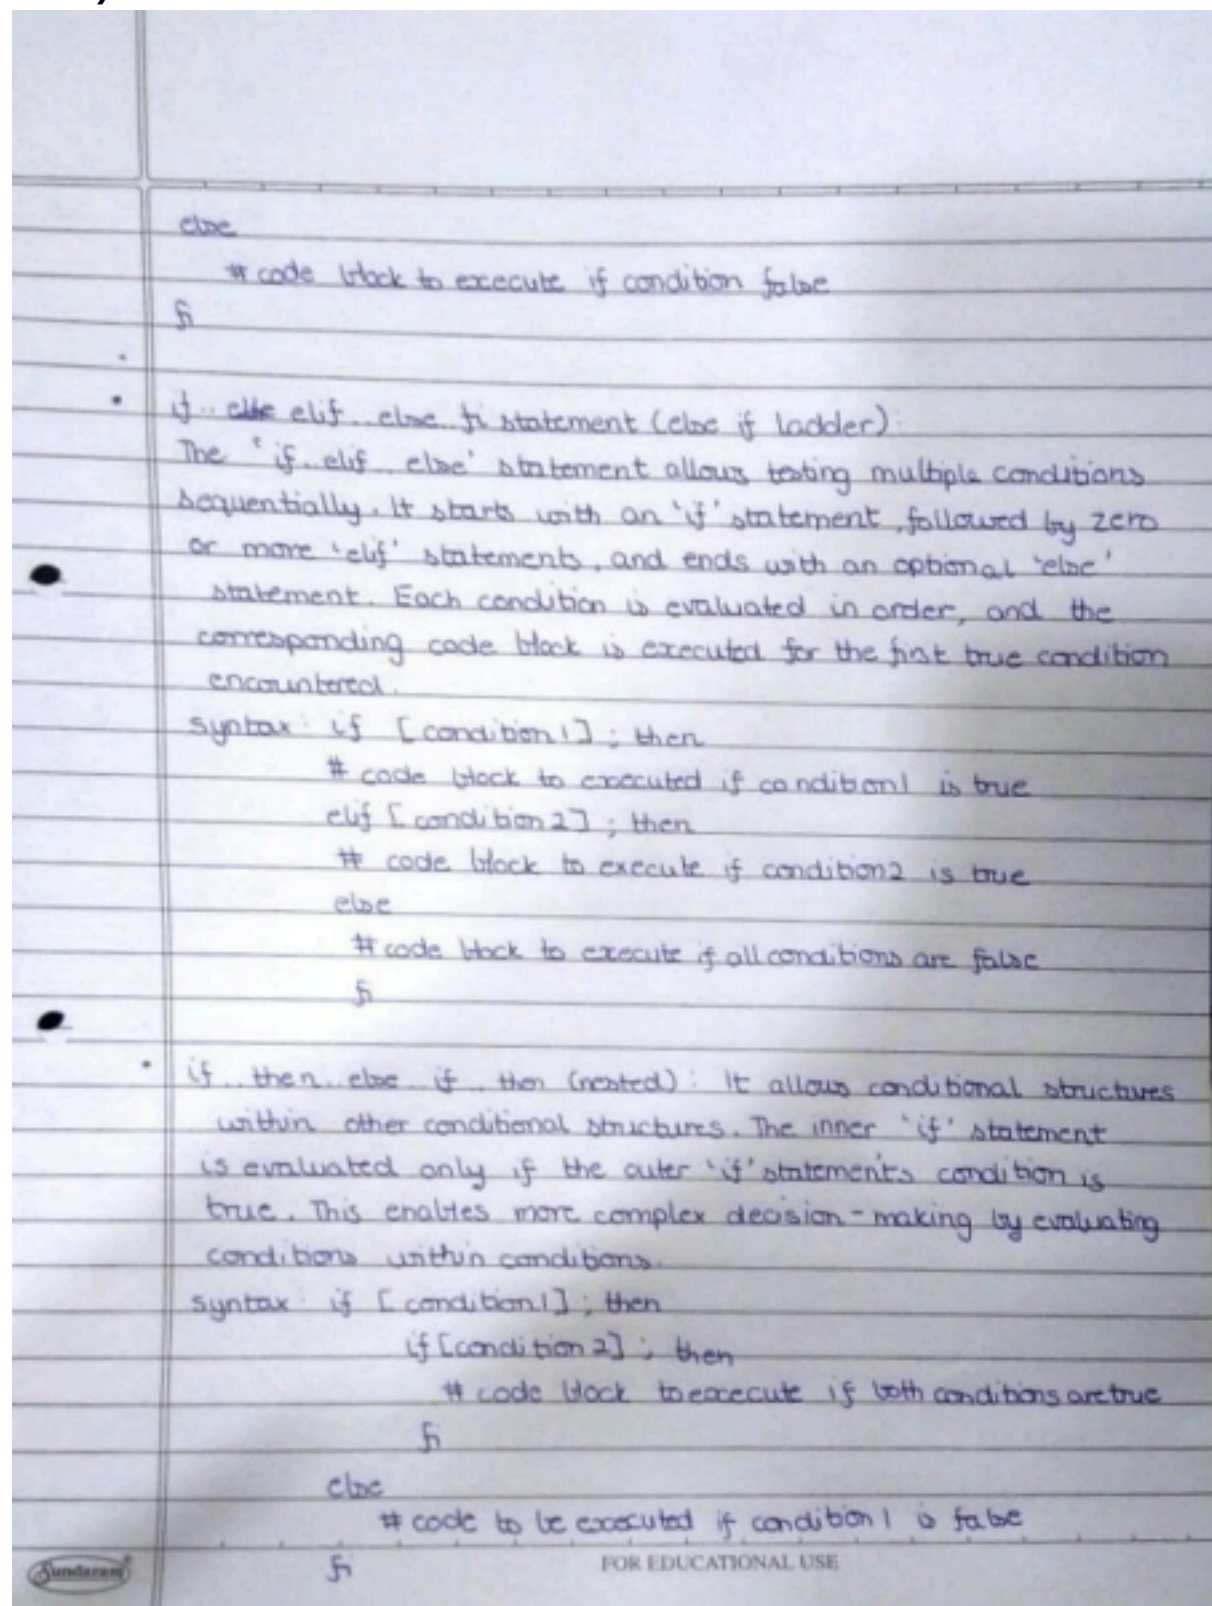 else
# code block to execute if condition false
fi
if .. elif .. else fi statement (else if ladder) :
The 'if..elif.. else' statement allows testing multiple conditions
sequentially. It starts with an 'if' statement, followed by zero
or more 'elif' statements, and ends with an optional 'else'
statement. Each condition is evaluated in order, and the
corresponding code block is executed for the first true condition
encountered.
syntax : if [condition1] ; then
# code block to executed if condition1 is true
elif [condition2] ; then
# code block to execute if condition2 is true
else
# code block to execute if all conditions are false
fi
if .. then .. else if .. then (nested) : It allows conditional structures
within other conditional structures. The inner 'if' statement
is evaluated only if the outer 'if' statement's condition is
true. This enables more complex decision-making by evaluating
conditions within conditions.
syntax : if [condition1] ; then
if [condition2] ; then
# code block to execute if both conditions are true
fi
else
# code to be executed if condition1 is false
fi
Sundaram
FOR EDUCATIONAL USE